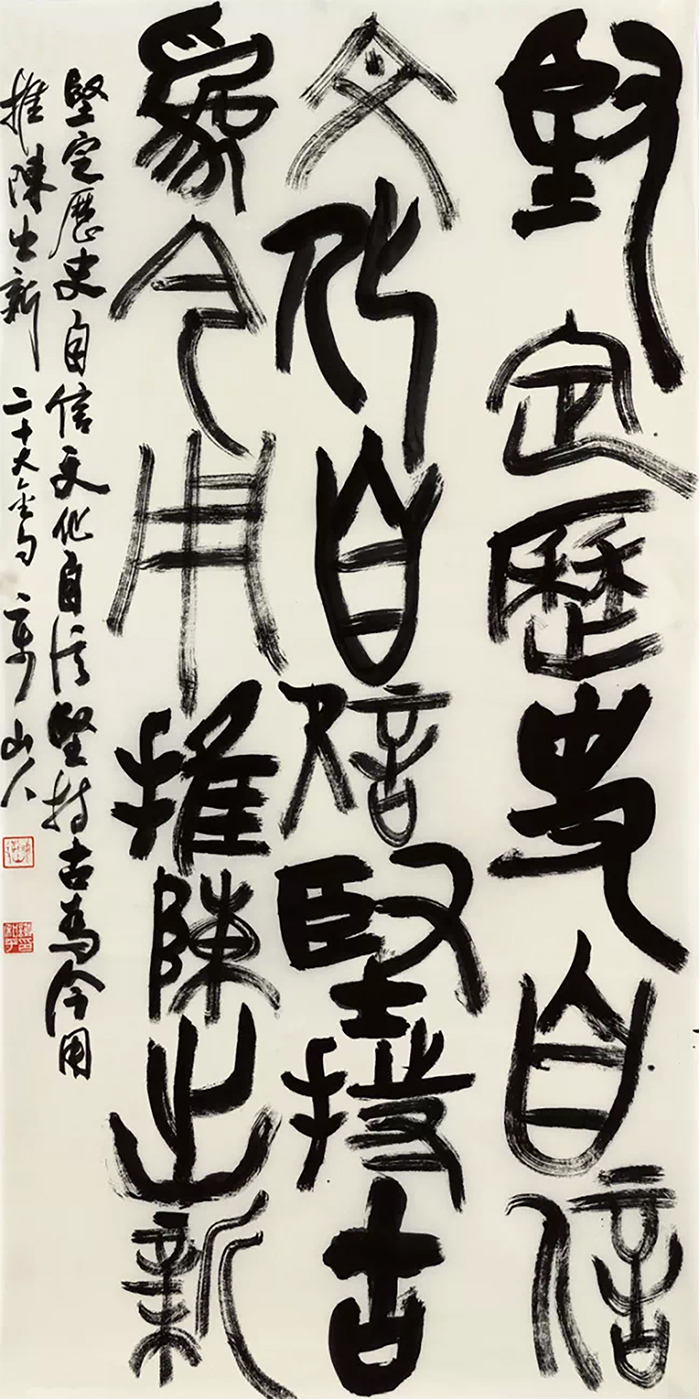 堅定歷史自信
文化自信堅持古
為今用推陳出新
堅定歷史自信文化自信堅持古為今用
推陳出新 二十大金句 山人